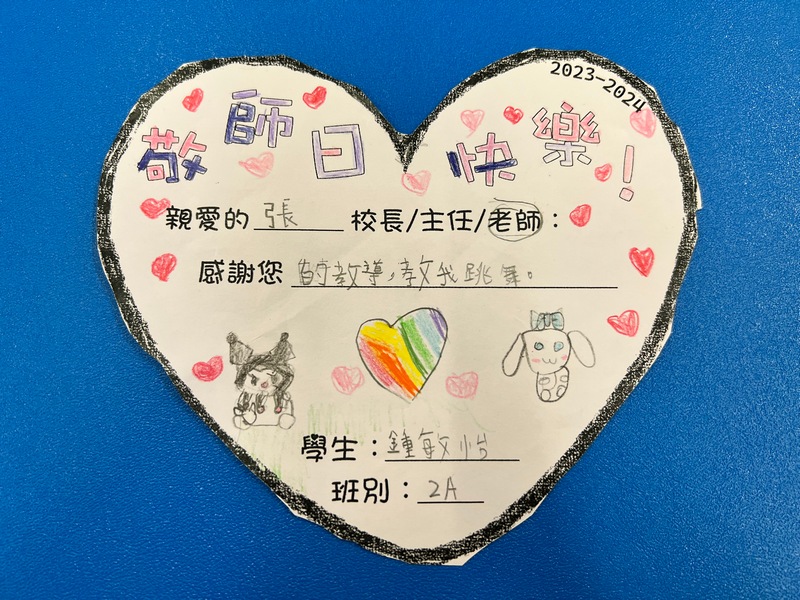 2023-2024
敬師日快樂!
親愛的 張 校長/主任/老師:
感謝您 的教導,教我跳舞。
學生:鍾敏怡
班別:2A